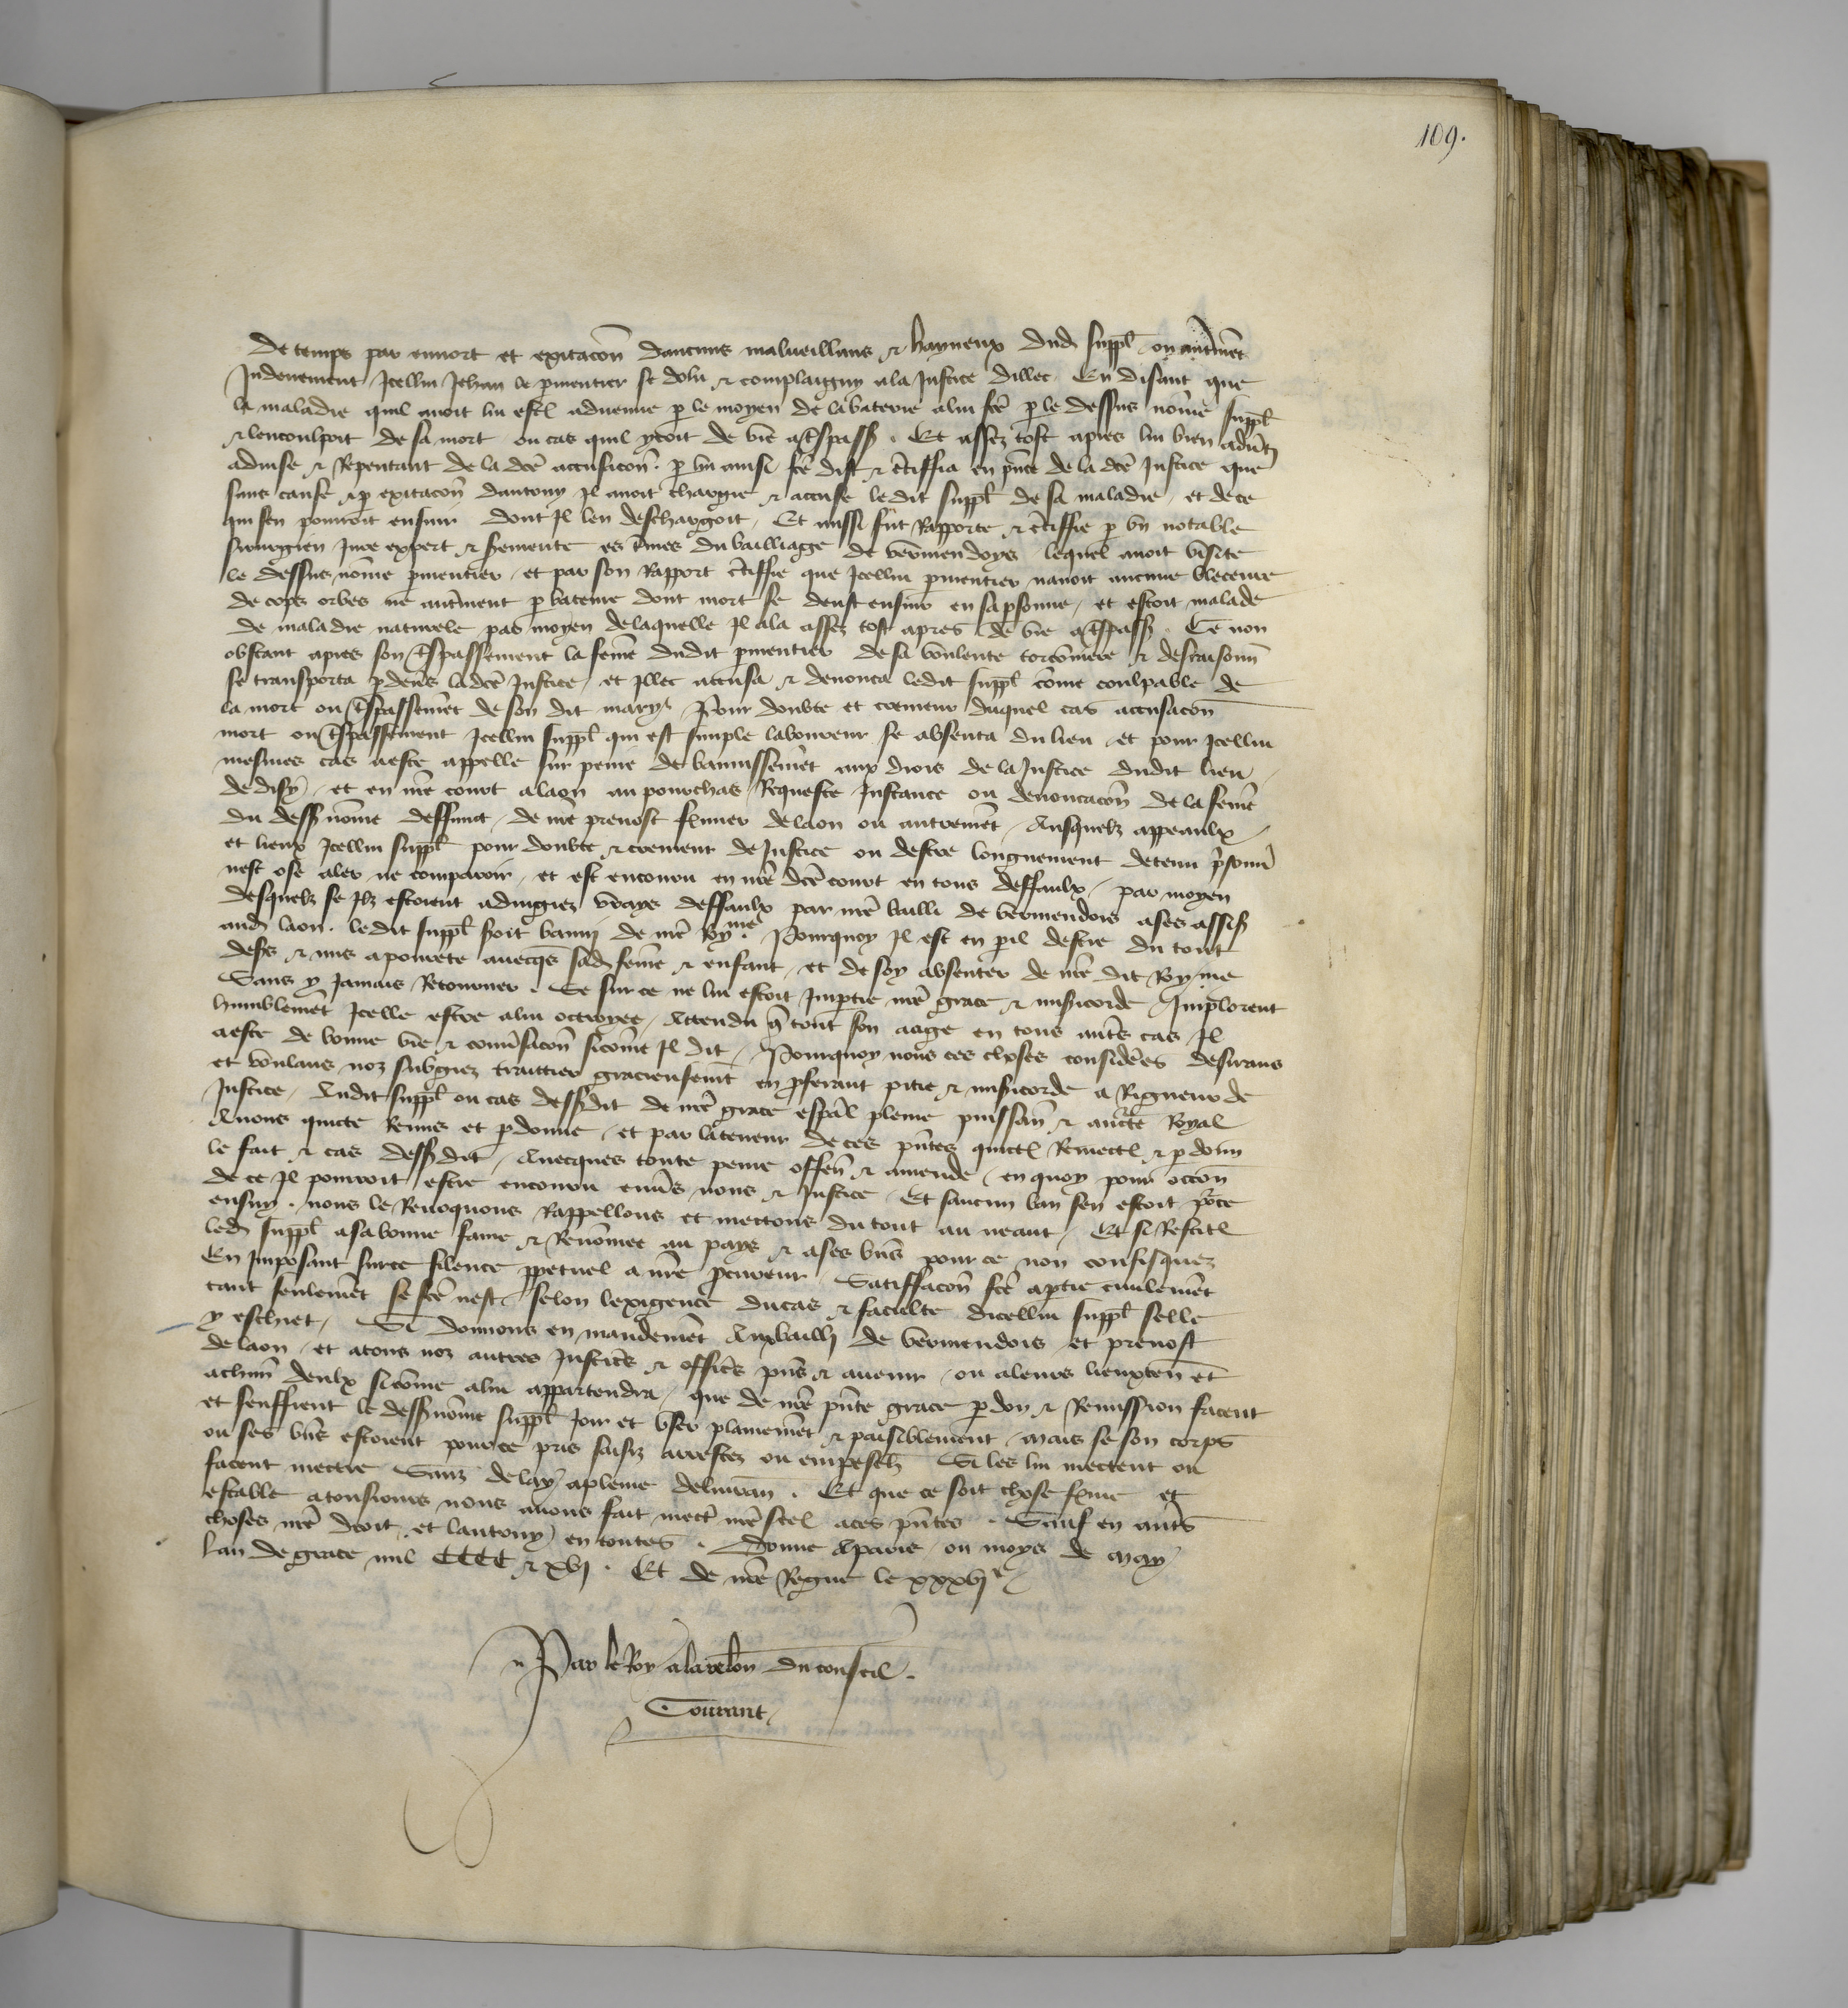 109.
De temps par ennort et exitacōn daucuns malveillans & hayneux dud suppl ou autrmēt
Indeuement Icellui Jehan le pmentier se dolu & complaigny ala Justice dillec En disant que
la maladie quil avoit lui estoit advenue p le moyen de la baterie alui fcē p le dessus nōme suppl
& lencoulpoit de sa mort ou cas quil yroit de vie a tspassȝ . Et assez tost apres lui bien
advise & Repentant de la dcē accusacōn p lui ainsi fcē dist & ctiffia en pnce de la dcē Justice que
sans cause & p exitacōn dautruy Il avoit chargie & accuse ledit suppl de sa maladie et de ce
qui sen pourroit ensuir dont Il len deschargoit Et aussi fut Rapporte & ctiffie p un notable
sirurgien Jure expert & sermente es tmes du bailliage de vermendoys lequel avoit visite
le dessus nōme pmentier et par son Rapport ctiffie que Icellui pmentier navoit aucune blecure
de cops orbes ne autrment p bateure dont mort se deust ensuir en sa psonne et estoit malade
de maladie naturele par moyen delaquelle Il ala assez tost apres de vie a tspassȝ . Ce non
obstant apres son tspassement la femē dudit pmentier de sa voulente torconniere & desraisonn
se transporta p devs ladcē Justice et Illec accusa & denonca ledit suppl cōme coulpable de
la mort ou tspassemēt de son dit mary Pour doubte et cremeur duquel cas accusacōn
mort ou tspassement Icellui suppl qui est simple laboureur se absenta du lieu et pour Icellui
mesmes cas aeste appelle sur peine de bannissemēt aux drois de la Justice dudit lieu
de disy et en nrē court a laon au pourchas Requeste Instance ou denonciacōn de la femē
du dessȝ nōme deffunct de nrē prevost fermier de laon ou autremēt Ausquelz appeaulx
et lieux Icellui suppl pour doubte & cremeur de Justice ou destre longuement detenu prisonnr
nest ose aler ne comparoir et est encouru en nrē dcē court en tous deffaulx par moyen
desquelz se Ilz estoient adiugiez vrays deffaulx par nrē bailli de vermendois ases assisȝ
aud laon ledit suppl seroit banny de nrē Royme Pourquoy Il est en peril destre du tout
desrs & mis apovrete avecqs sad femē & enfant et de soy absenter de nrē dit Royme
Sans y Jamais Retourner Se sur ce ne lui estoit Imptie nrē grace & misericorde Implorent
humblemēt Icelle estre alui octroyee Attendu q tout son aage en tous autrs cas Il
aeste de bonne vie & convsacōn sicōme Il dit Pourquoy nous ces choses considerees desirans
et voulans noz subgiez traittier gracieusemt en pferant pitie & misericorde a Rigueur de
Justice Audit suppl ou cas dessȝdit de nrē grace espāl pleine puissanc & auctē Royal
Avons quicte Remis et pdonne et par lateneur de ces pntes quictons Remectons & pdonn
le fait & cas dessȝdit Avecques toute peine offenc & amende en quoy pour occōn
de ce Il pourroit estre encouru envs nous & Justice Et saucun ban sen estoit
ensuy nous le Revoquons Rappellons et mectons du tout au neant Et si Restitl
led suppl asabonne fame & Renōmee au pays & ases bns pour ce non confisquez
En Imposant surce silence ppetuel a nrē pcureur Satiffacōn fcē aptie civilemēt
tant seulemēt se fcē nest selon lexigence ducas & faculte dicellui suppl selle
y eschiet Si donnons en mandemēt Aubailli de vermendois et prevost
de laon et atous noz autres Justicrs & officrs pns & avenir ou aleurs lieuxten et
achun deulx sicōme alui appartendra que de nrē pnte grace pdon & Remission facent
et seuffrent le dessȝnōme suppl Joir et user plainemēt & paisiblement mais se son corps
ou ses bns estoient pource pris saisiz arrestez ou empeschz Si les lui mectent ou
facent mectre Sanz delay apleine delivran . Et que ce soit chose ferme et
estable atousiours nous avons fait mectr nrē scel aces pntes . Sauf en autrs
choses nrē droit et lautruy en toutes . Donne Aparis ou moys de may
Lan de grace mil CCCC & xvj . Et de nrē Regne le xxxvje
Par le Roy alarelōn duconseil .
Courant